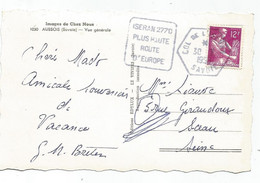 Images de Chez Nous
1020 AUSSOIS (Savoie) - Vue générale
ISERAN 2770
PLUS HAUTE
ROUTE
D'EUROPE
COL DE L'
30
SAVOIE
12F
Chère Mado
Amicale Souvenir
de
Vacances
G. M.
Mme
5 rue Giraudoux
Sceau
Seine